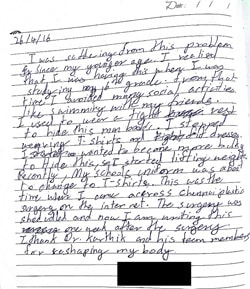 Date: / /
26/4/16
I was suffering from this problem
since my younger age. I realised
that I was having this when I was
studying my 10th grade. From that
time I avoided many social activities
like swimming with my friends.
I used to wear a tight vest
to hide this man boobs
wearing T-shirts dresses
I wanted to become more bulky
to hide this, so I started lifting weights
Recently my school's uniform was about
to change to T-shirts. This was the
time when I came across chennai plastic
surgery on the internet. The surgery was
scheduled and now I am writing this
one week after the surgery.
I thank Dr Karthik and his team members
for reshaping my body